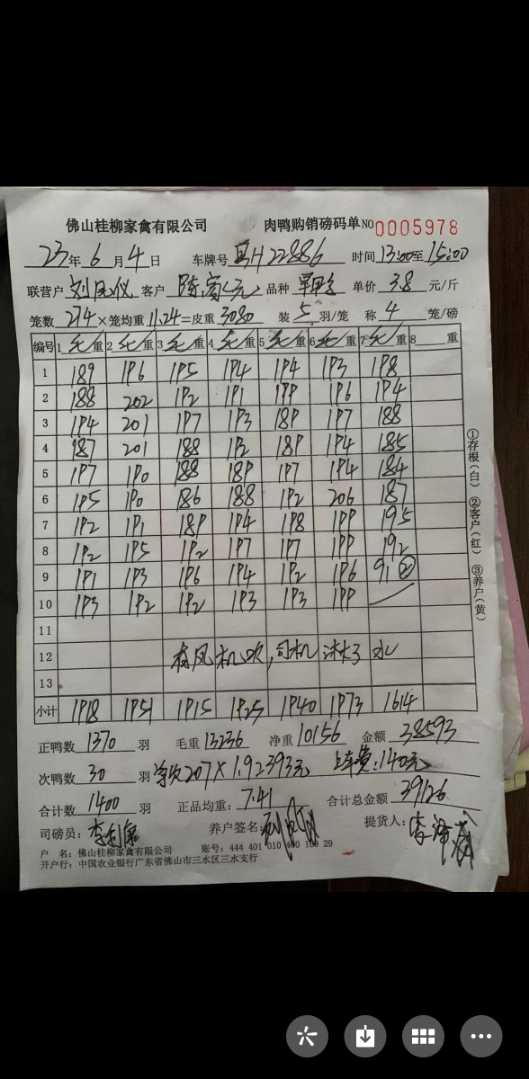 佛山桂柳家禽有限公司 肉鸭购销磅码单 NO 0005978
23年6月4日 车牌号 H22886 时间 13:00至15:00
联营户 刘 仪 客户 陈富(元) 品种 单价 3.8 元/斤
笼数 274×笼均重11.24=皮重3080 装 5 羽/笼 称 4 笼/磅
编号 1毛重 2毛重 3毛重 4毛重 5毛重 6毛重 7毛重 8 重
1 189 196 195 194 194 193 198
2 188 202 192 191 199 196 194
3 194 201 197 193 189 197 188
4 187 201 188 192 189 194 185
5 197 190 188 189 197 194 184
6 195 190 186 188 192 206 187
7 192 191 189 194 198 199 195
8 192 195 192 197 197 199 192
9 191 193 196 194 192 196 91②
10 193 192 192 193 193 199
11
12 有风机吹,司机淋了水
13
小计 1918 1951 1915 1925 1940 1973 1614
①存根(白) ②客户(红) ③养户(黄)
正鸭数 1370 羽 毛重 13236 净重 10156 金额 38593
次鸭数 30 羽 207×1.9 2393元 上车费:140元
合计数 1400 羽 正品均重: 7.41 合计总金额 39126
司磅员: 养户签名 提货人:
户 名: 佛山桂柳家禽有限公司 账号: 444 401 010 400 29
开户行: 中国农业银行广东省佛山市三水区三水支行